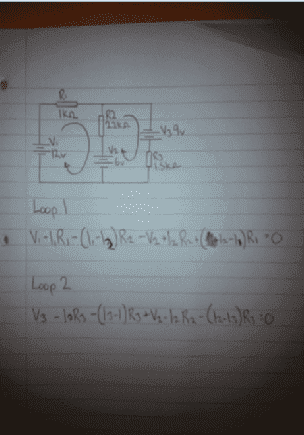 R1
1kΩ
R2
2.2kΩ
V1
12v
V2
6v
V3 9v
R3
1.5kΩ
Loop 1
V1 - I1R1 - (I1-I2)R2 - V2 + I2R2 + (I2-I1)R1 = 0
Loop 2
V3 - I2R3 - (I3-I)R3 + V2 - I2R2 - (I2-I3)R3 = 0